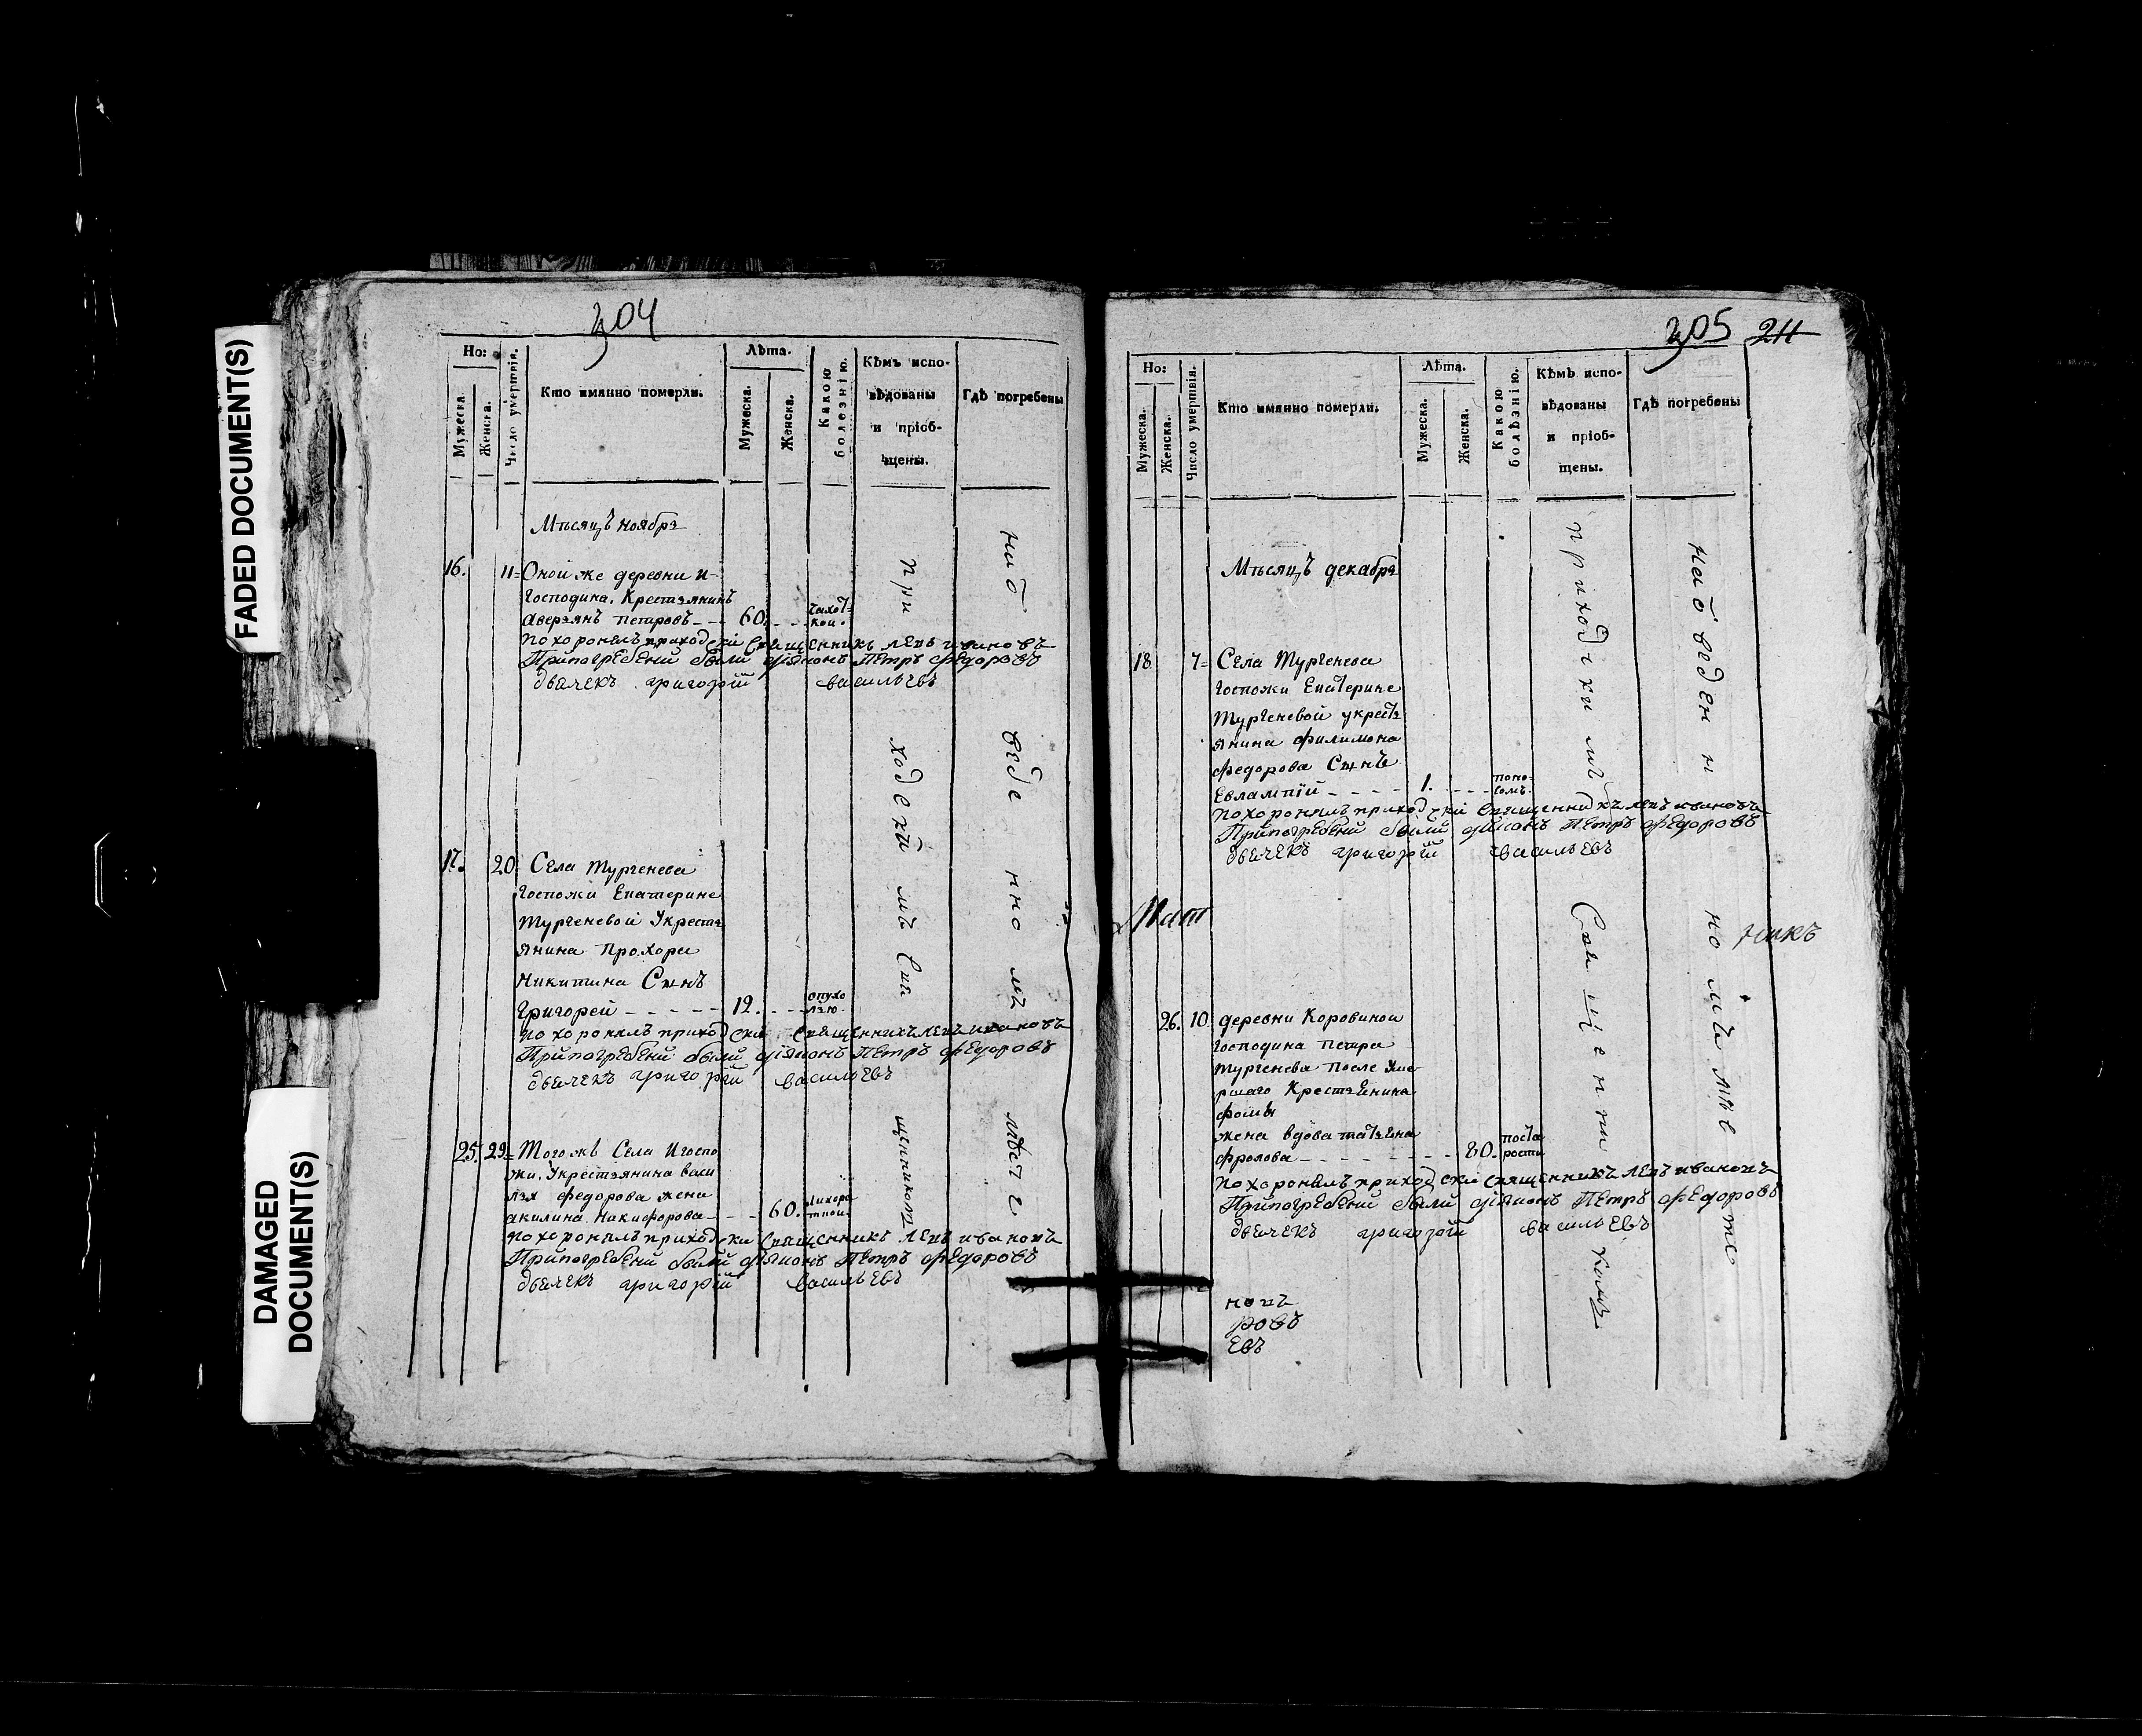 FADED DOCUMENT(S)
DAMAGED
DOCUMENT(S)
304
Но:
Мужеска.
Женска.
Число умертвія.
Кто имянно померли.
Лѣта.
Мужеска.
Женска.
Какою
болезнію.
Кѣмъ испо-
вѣдованы
и пріоб-
щены.
Гдѣ погребены
Мѣсяцъ ноябрь
16. 11= Оной же деревни и
господина. Крестьянинъ
аверьянъ петровъ - - 60. - - чахот
кой.
похоронялъ приходскій священникъ левъ ивановъ
Припогребеній были діяконъ Петръ федоровъ
дьячекъ григорій васильевъ
17. 20. Села Тургенева
госпожи Екатерине
Тургеневой Укресть
янина Прохора
Никитина Сынъ
григорей - - - - - 12. - - опухо
лью.
похоронялъ приходскій священникъ левъ ивановъ
Припогребеній были діяконъ Петръ федоровъ
дьячекъ григорій васильевъ
25. 29= Тогожъ Села Игоспо
жи. Укрестьянина васи
лья федорова жена
акилина Никифорова - - - 60. лихора
ткой.
похоронялъ приходски священникъ левъ ивановъ
Припогребеній были діяконъ Петръ федоровъ
дьячекъ григорій васильевъ
при ходский мъ Свя щенникомъ
наб веде нно мъ мѣсте
305 211
Но:
Мужеска.
Женска.
Число умертвія.
Кто имянно померли.
Лѣта.
Мужеска.
Женска.
Какою
болѣзнію.
Кѣмъ испо-
вѣдованы
и пріоб-
щены.
Гдѣ погребены
Мѣсяцъ декабрь
18 7= Села Тургенева
госпожи Екатерине
Тургеневой укресть
янина филимона
федорова Сынъ
Евлампій - - - - 1. - - - поно
сомъ.
похоронялъ приходскій священникъ левъ ивановъ
Припогребеній были діяконъ Петръ федоровъ
дьячекъ григорій васильевъ
26. 10. деревни Коровиной
господина Петра
тургенева после уме
ршаго Крестьянина
фомы
жена вдова татьяна
фролова - - - - - - 80. поста
рости
похоронялъ приходскій священникъ левъ ивановъ
Припогребеній были діяконъ Петръ федоровъ
дьячекъ григорій васильевъ
новъ
ровъ
евъ
приходскимъ Свя щенни комъ
наб веденн но мъ мѣсте
никъ